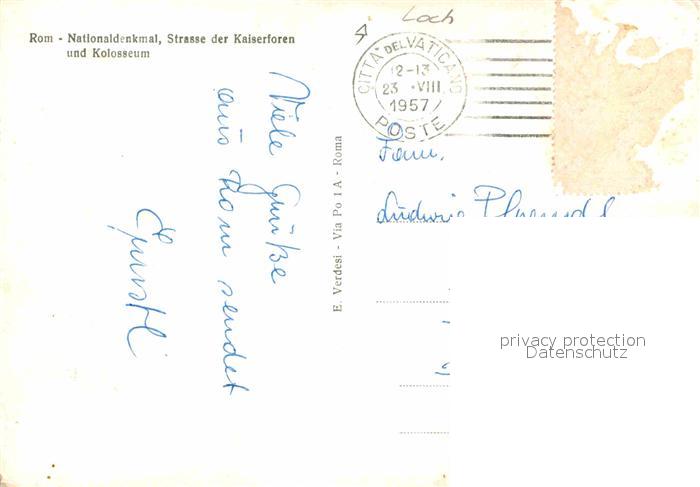 Rom - Nationaldenkmal, Strasse der Kaiserforen
und Kolosseum
Viele Grüße
aus Rom sendet
E. Verdesi - Via Po 1 A - Roma
Loch
CITTA' DEL VATICANO
12-13
23 ·VIII
1957
POSTE
Fam.
Ludwig
privacy protection
Datenschutz